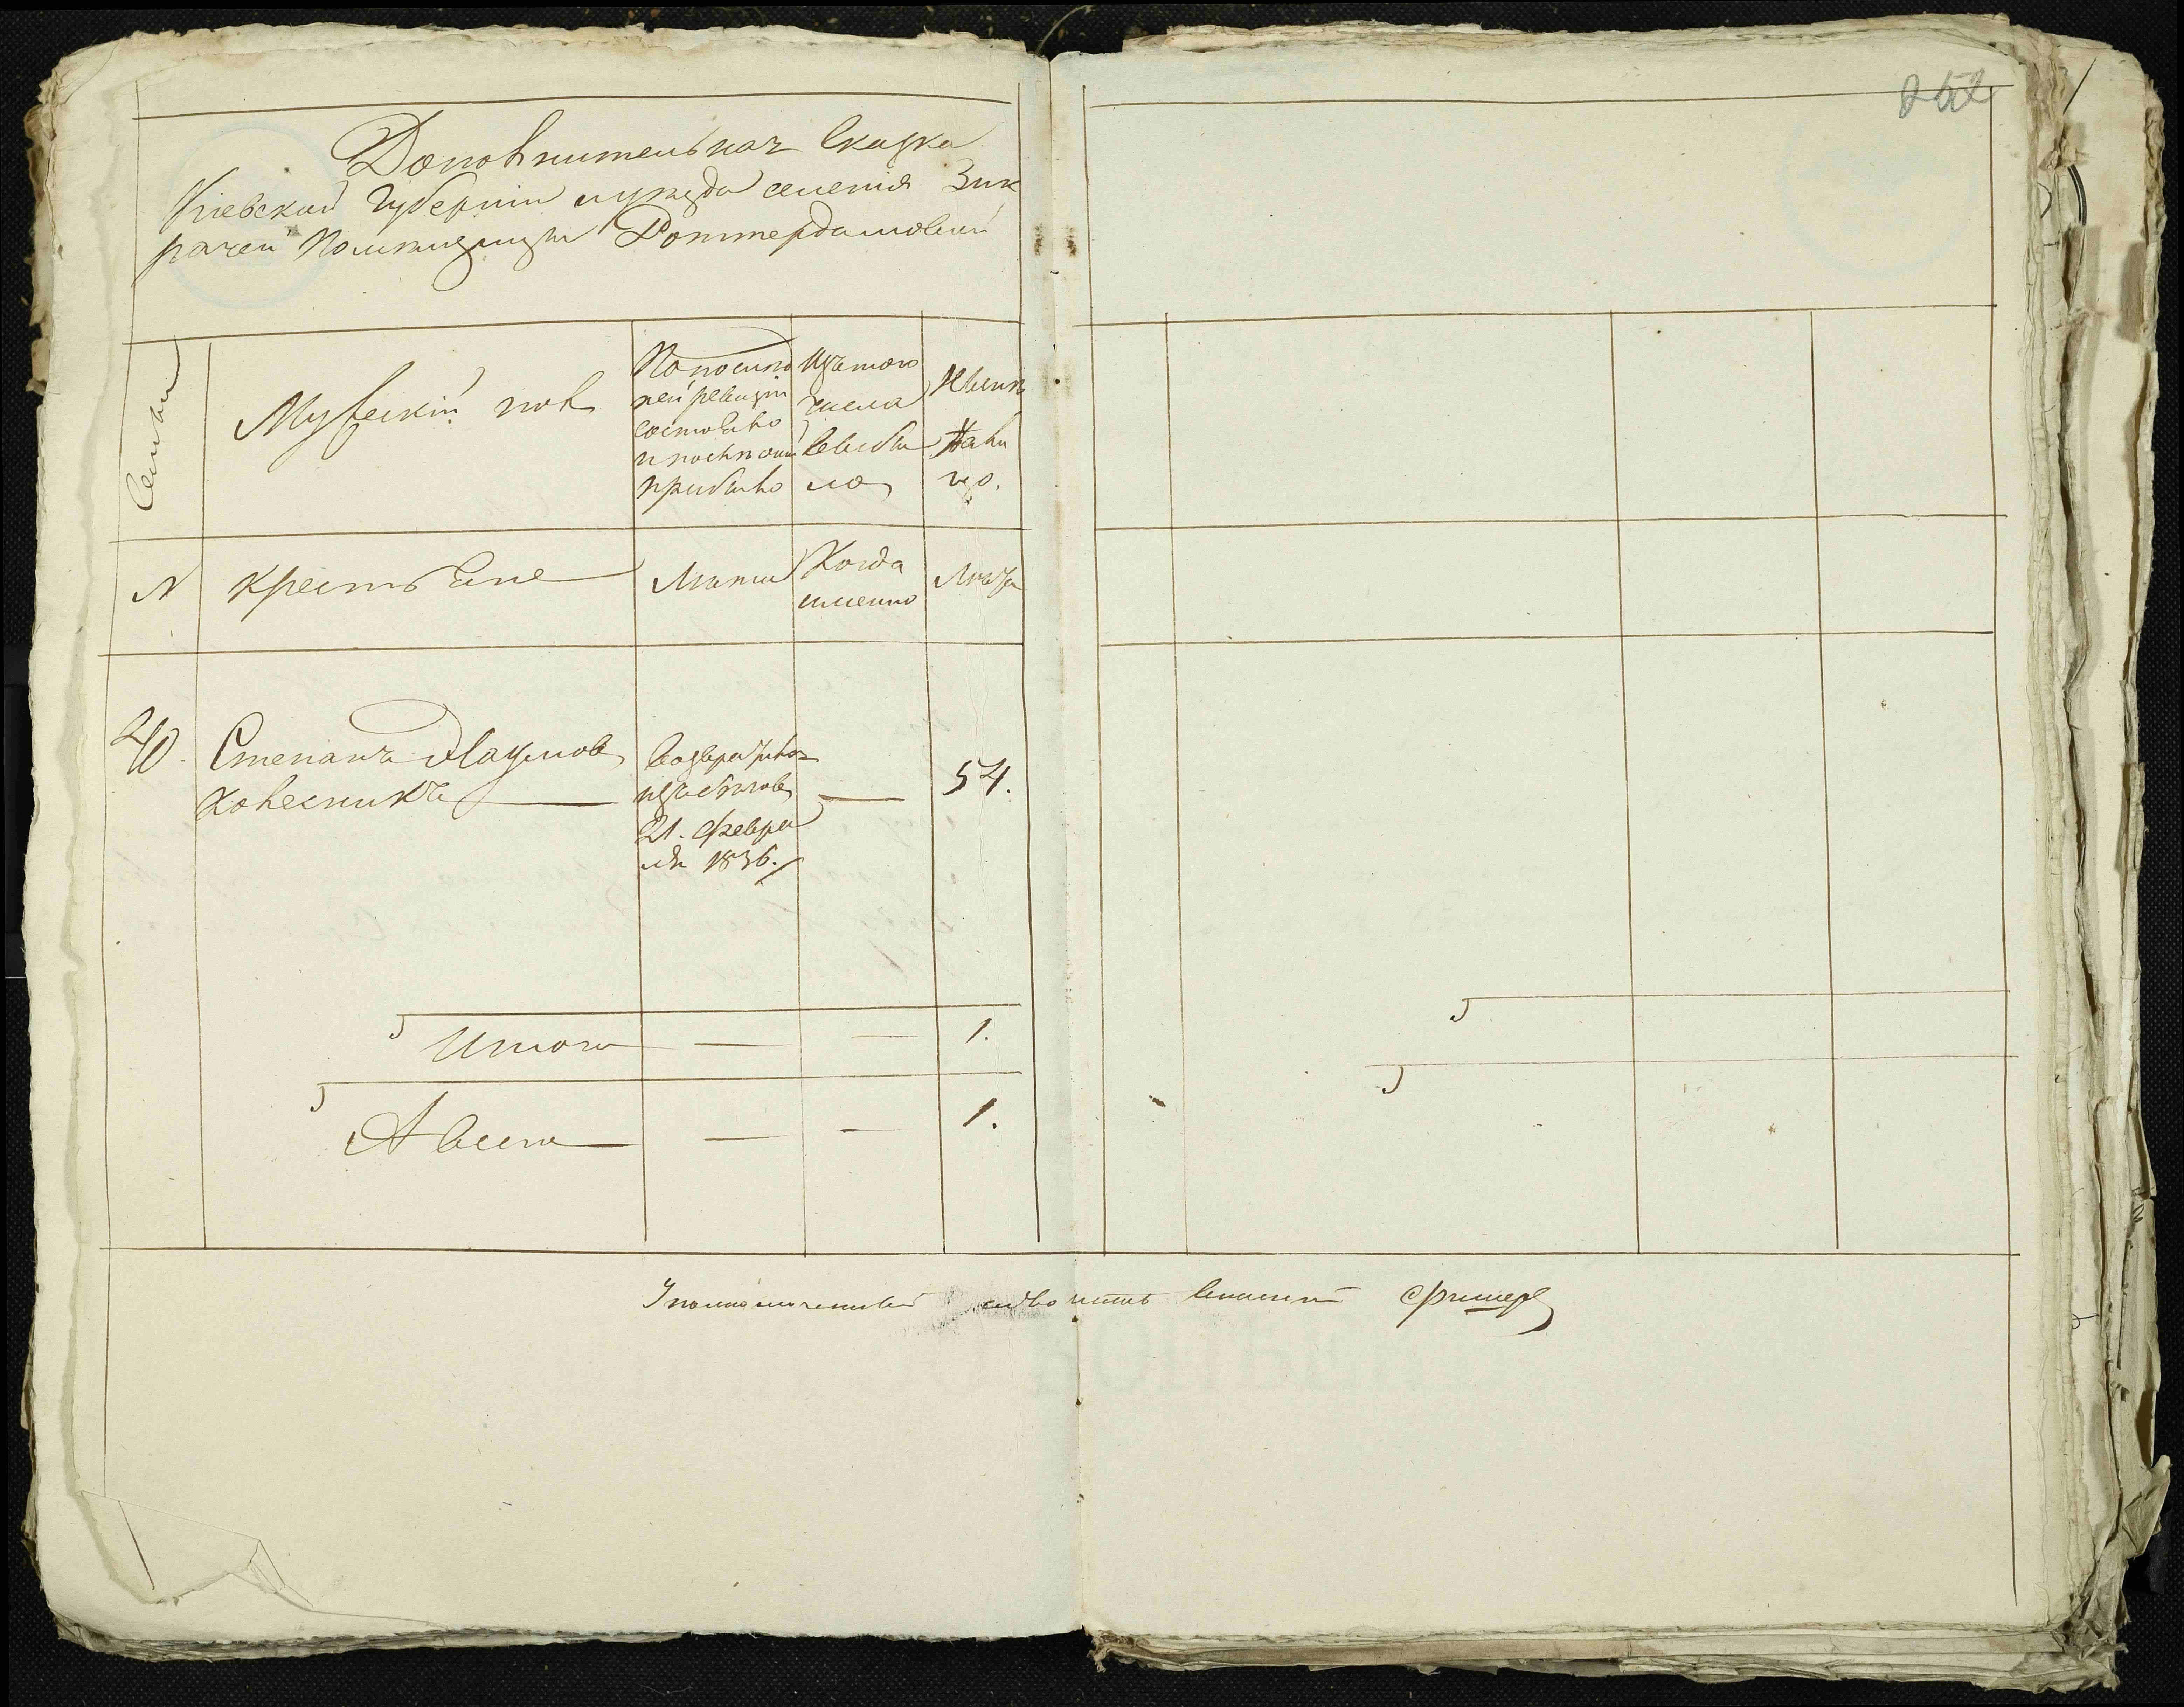 252
Дополнительная Сказка
Киевской Губернии и уезда селения Зик
рачей Помещицы Роттердамовой
Семьи
Мужеский пол
По послед
ней ревизіи
состояло
и после оной
прибыло
Изъ того
числа
выбы
ло
Ныне
на ли
цо.
N
крестьяне
Лета
Когда
именно
Лета
40.
Степанъ Наумовъ
Колесникъ
возвратился
из бегов
21. Февра
ля 1836.
—
54.
Итого — — 1.
А всего — — 1.
Уполномоченный Фишеръ